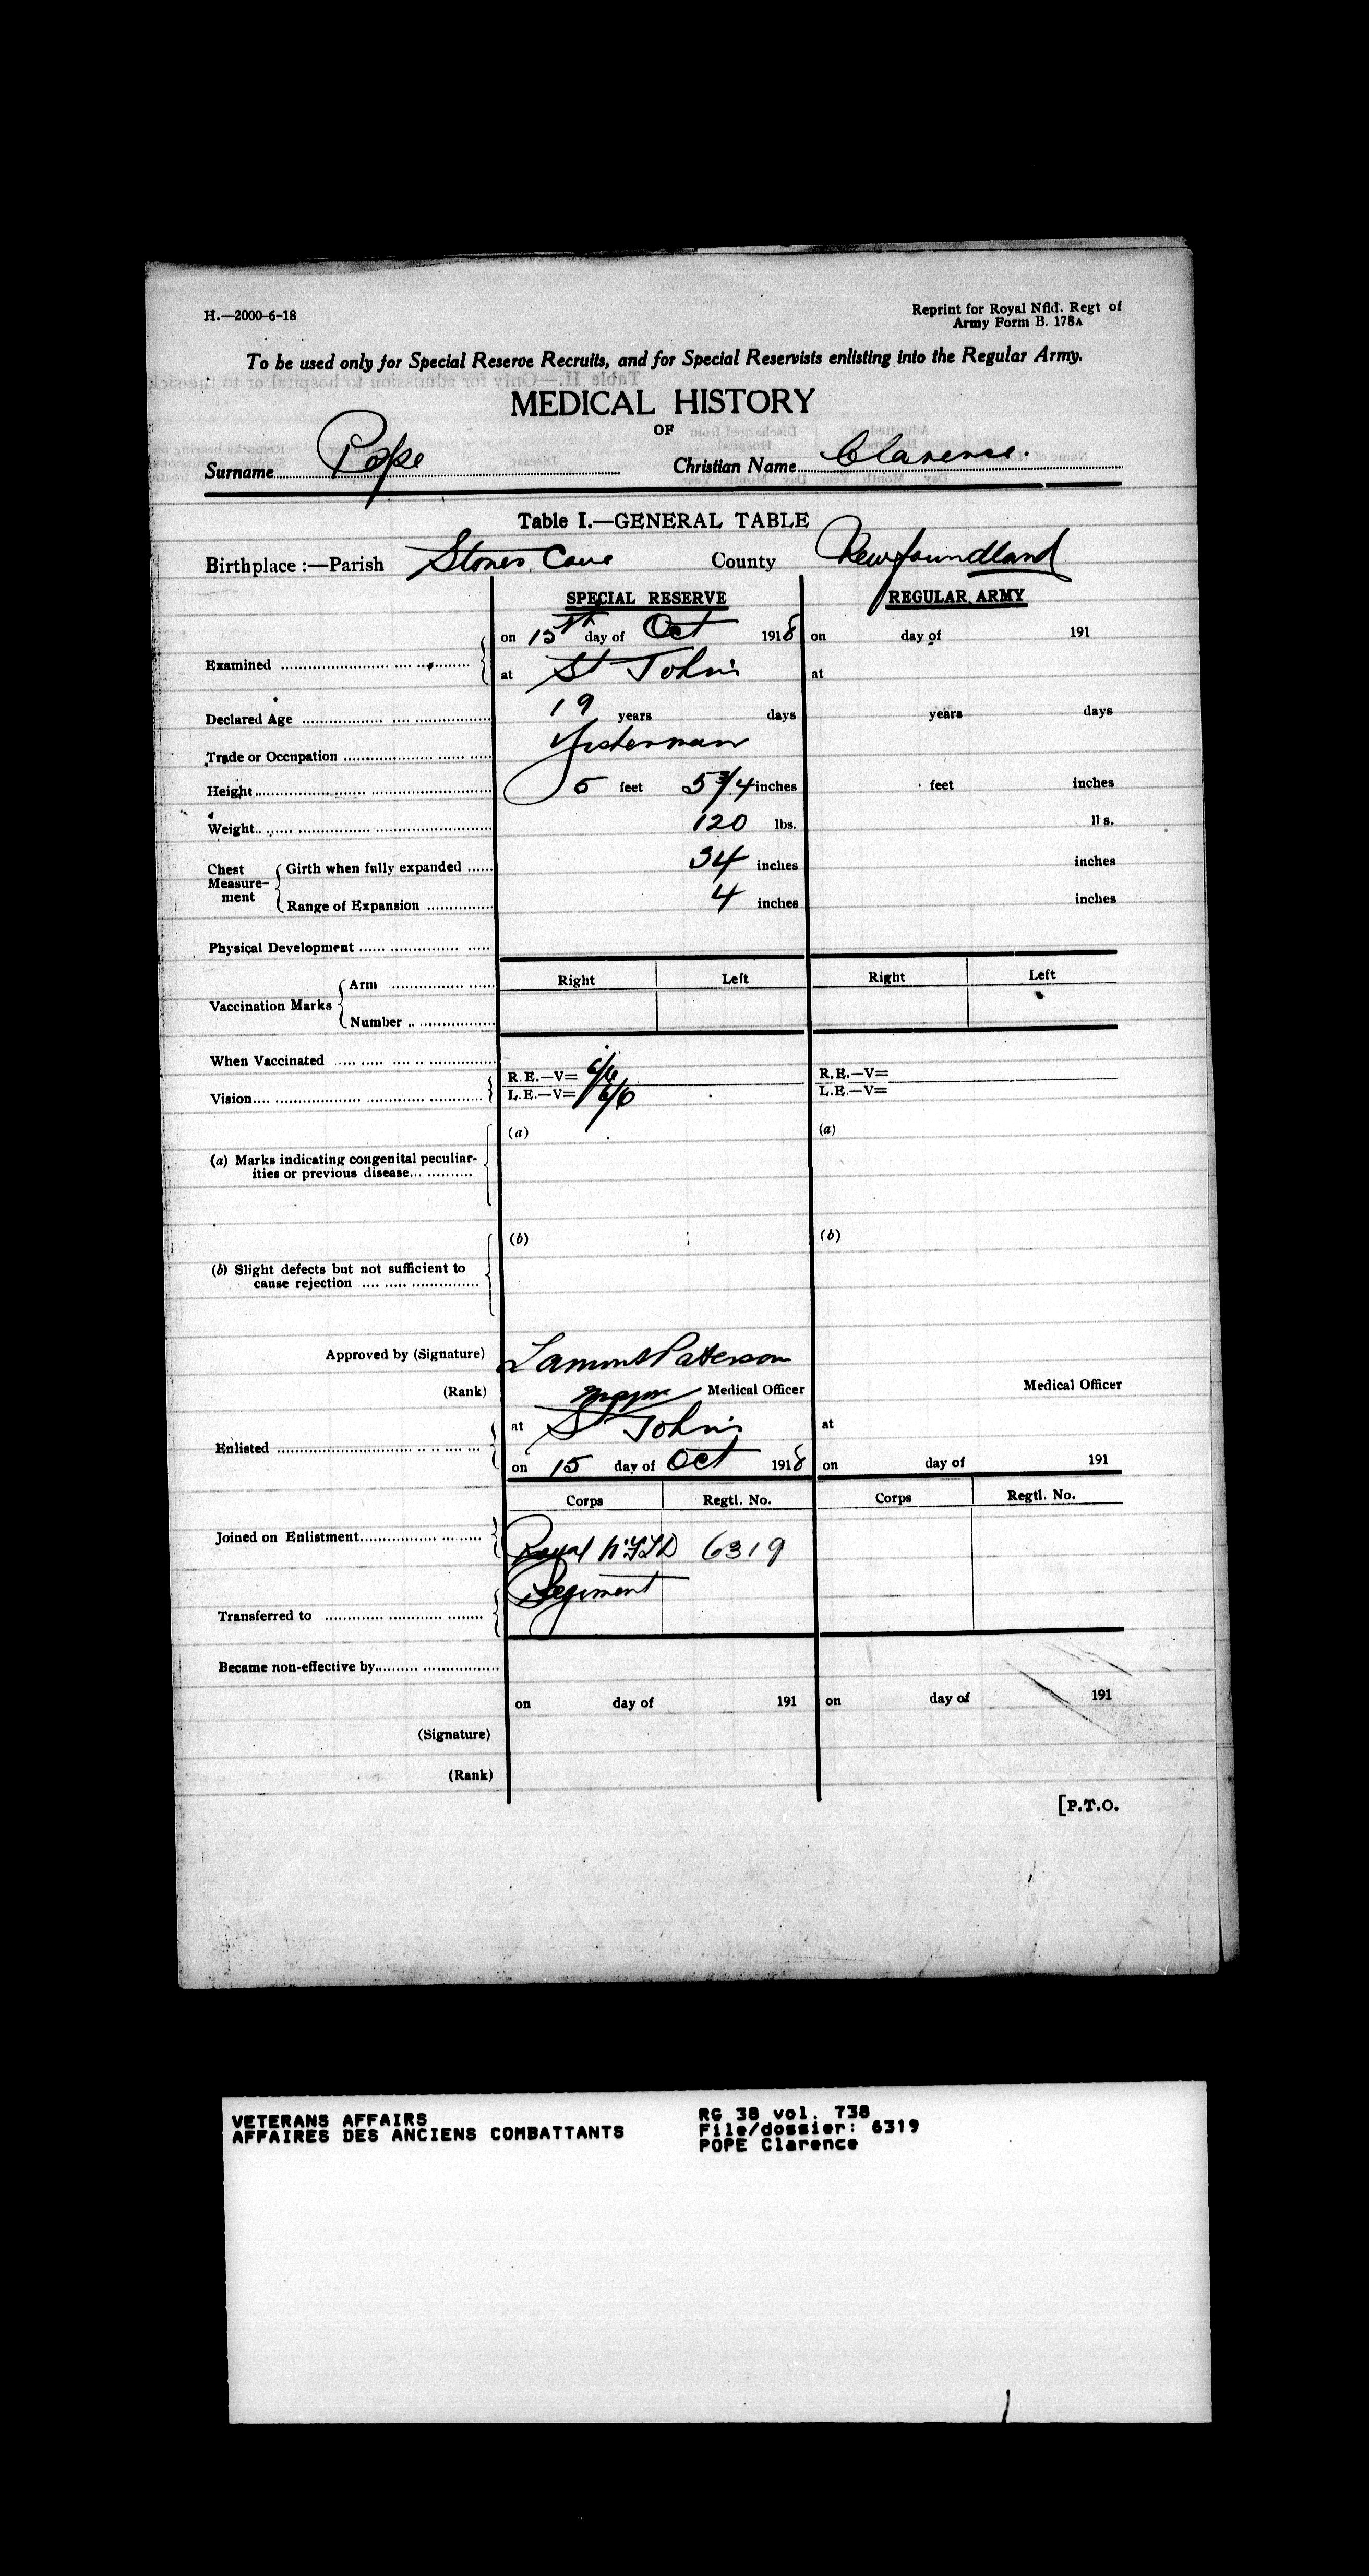 H.—2000-6-18
Reprint for Royal Nfld. Regt of
Army Form B. 178A
To be used only for Special Reserve Recruits, and for Special Reservists enlisting into the Regular Army.
MEDICAL HISTORY
OF
Surname Pope Christian Name Clarence.
Table I.—GENERAL TABLE
Birthplace :—Parish Stones Cove County Newfoundland
SPECIAL RESERVE REGULAR ARMY
on 15th day of Oct 1918 on day of 191
Examined
at St John's at
Declared Age 19 years days years days
Trade or Occupation Fisherman
Height 5 feet 5 3/4 inches feet inches
Weight 120 lbs. lbs.
Chest Measure-ment Girth when fully expanded 34 inches inches
Range of Expansion 4 inches inches
Physical Development
Right Left Right Left
Vaccination Marks Arm
Number
When Vaccinated
Vision R.E.—V= 6/6 R.E.—V=
L.E.—V= 6/6 L.E.—V=
(a) (a)
(a) Marks indicating congenital peculiar-
ities or previous disease
(b) (b)
(b) Slight defects but not sufficient to
cause rejection
Approved by (Signature) Lamont Paterson
(Rank) Major Medical Officer Medical Officer
at St John's at
Enlisted
on 15 day of Oct 1918 on day of 191
Corps Regtl. No. Corps Regtl. No.
Joined on Enlistment Royal NFLD 6319
Regiment
Transferred to
Became non-effective by
on day of 191 on day of 191
(Signature)
(Rank)
[P.T.O.
VETERANS AFFAIRS RG 38 vol. 738
AFFAIRES DES ANCIENS COMBATTANTS File/dossier: 6319
POPE Clarence